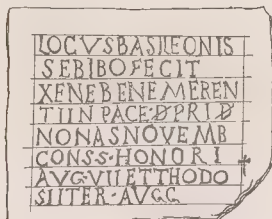 LOCVSBASILEONIS
SEBIBOFECIT
XENEBENEMEREN
TIINPACE·D·PRID
NONASNOVEMB
CONS·S·HONORI
AVG·VIIETTHODO
SIITER·AVGG